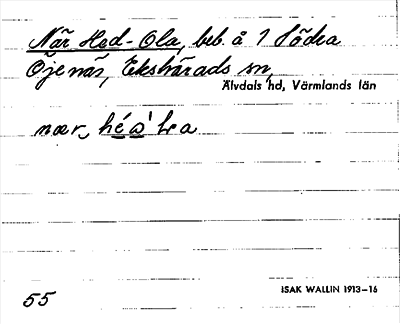 När Hed-Ola, beb. å 1 Södra
Öjenäs, Ekshärads sn,
Älvdals hd, Värmlands län
55
ISAK WALLIN 1913–16